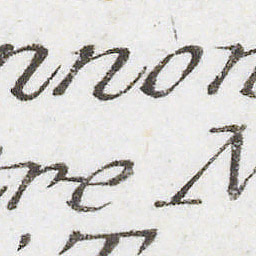 nnon
tre N